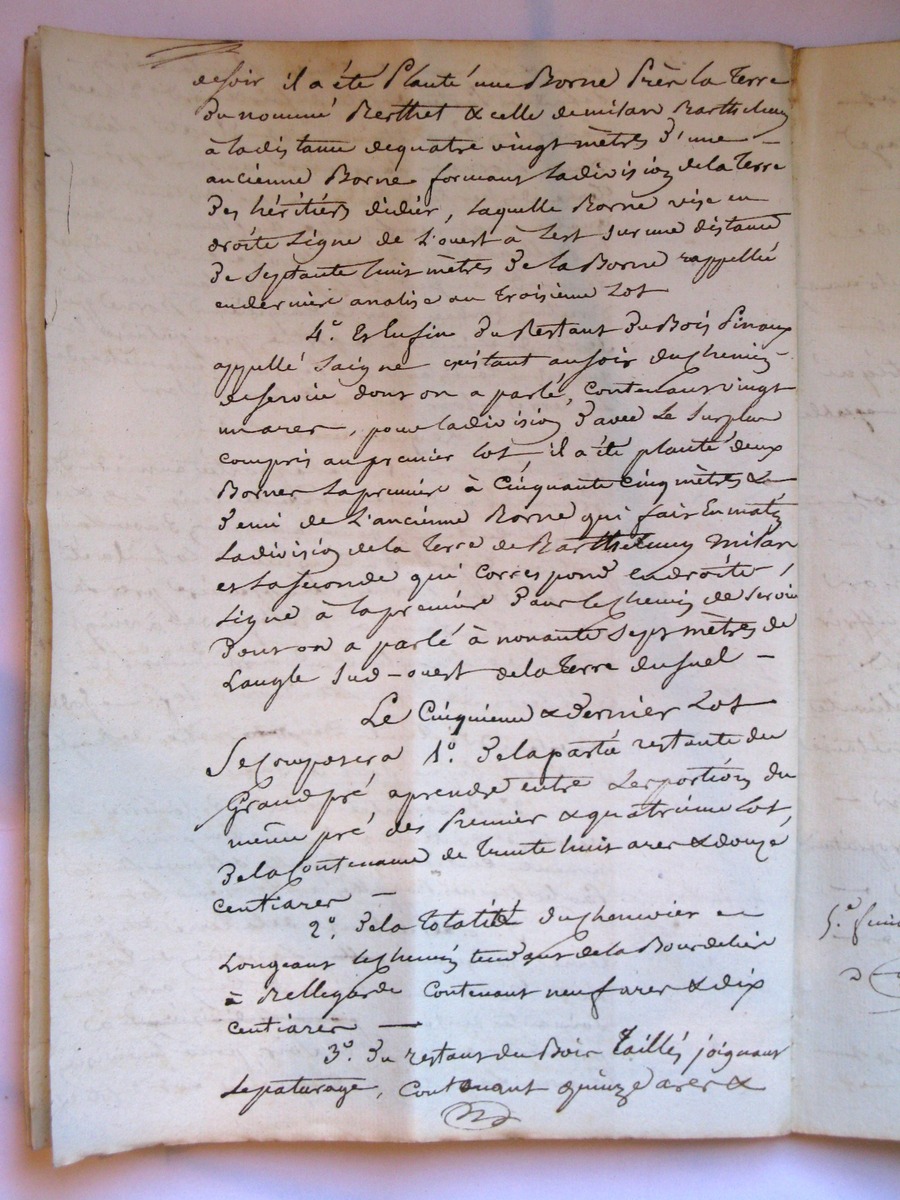 de soir il a été Planté une Borne Près la Terre
Du nommé Berthet & celle de milan Barthelmy
à la distance de quatre vingt mètres D'une
ancienne Borne formant la division de la Terre
Des héritiers didier, laquelle Borne vise en
droite Ligne de L'ouest à Lest sur une distance
De Septante huit mètres De la Borne rappellée
en dernière analise au Troisième Lot
4.° Et Enfin Du Restant Du Bois Pinaux
appellé Saigne existant au soir du chemin
de service dont on a parlé, contenant vingt
un ares, pour la division D'avec Le Surplus
compris au premier Lot il a été planté deux
Bornes La première à Cinquante Cinq mètres &
Demi de L'ancienne Borne qui fait En matin
La division de la Terre de Barthelmy Milan
et La seconde qui correspond en droite
Ligne à la première Dans le chemin de Service
Dont on a parlé à nonante Sept mètres de
L'angle Sud-ouest de la Terre du suel -
Le Cinquième & Dernier Lot
Se Composera 1.° De la partie restante du
Grand pré aprendre entre Les portions du
même pré des Premier & quatrième Lot,
De la Contenance de Trente huit ares & douze
Centiares -
2.° De la Totalité du chenevier
Longeant le chemin tendant de la Bourdelière
à Bellegarde Contenant neuf ares & dix
centiares -
3.° Du restant du Bois Taillis joignant
Le paturage, Contenant quinze ares &
5.e